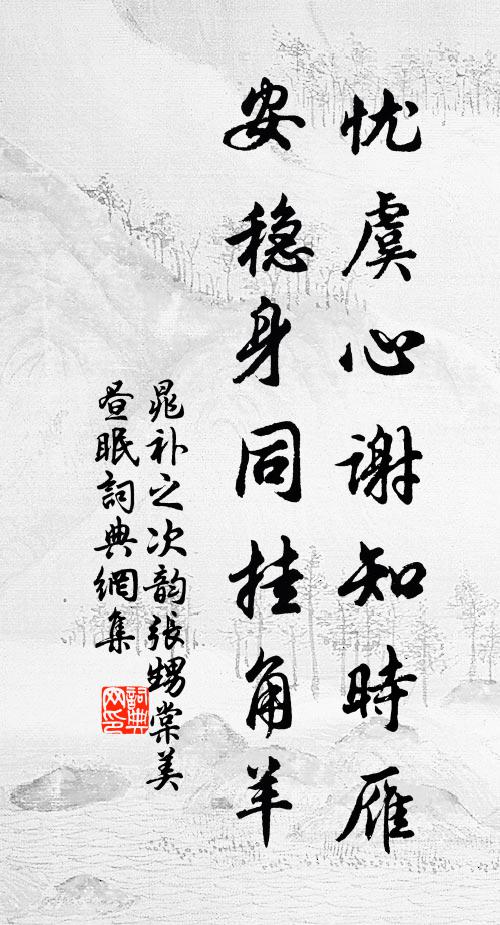 忧虞心谢知時雁
安稳身同挂角羊
晁补之次韵张甥棠美
昼眠詞典網集
詞典网印